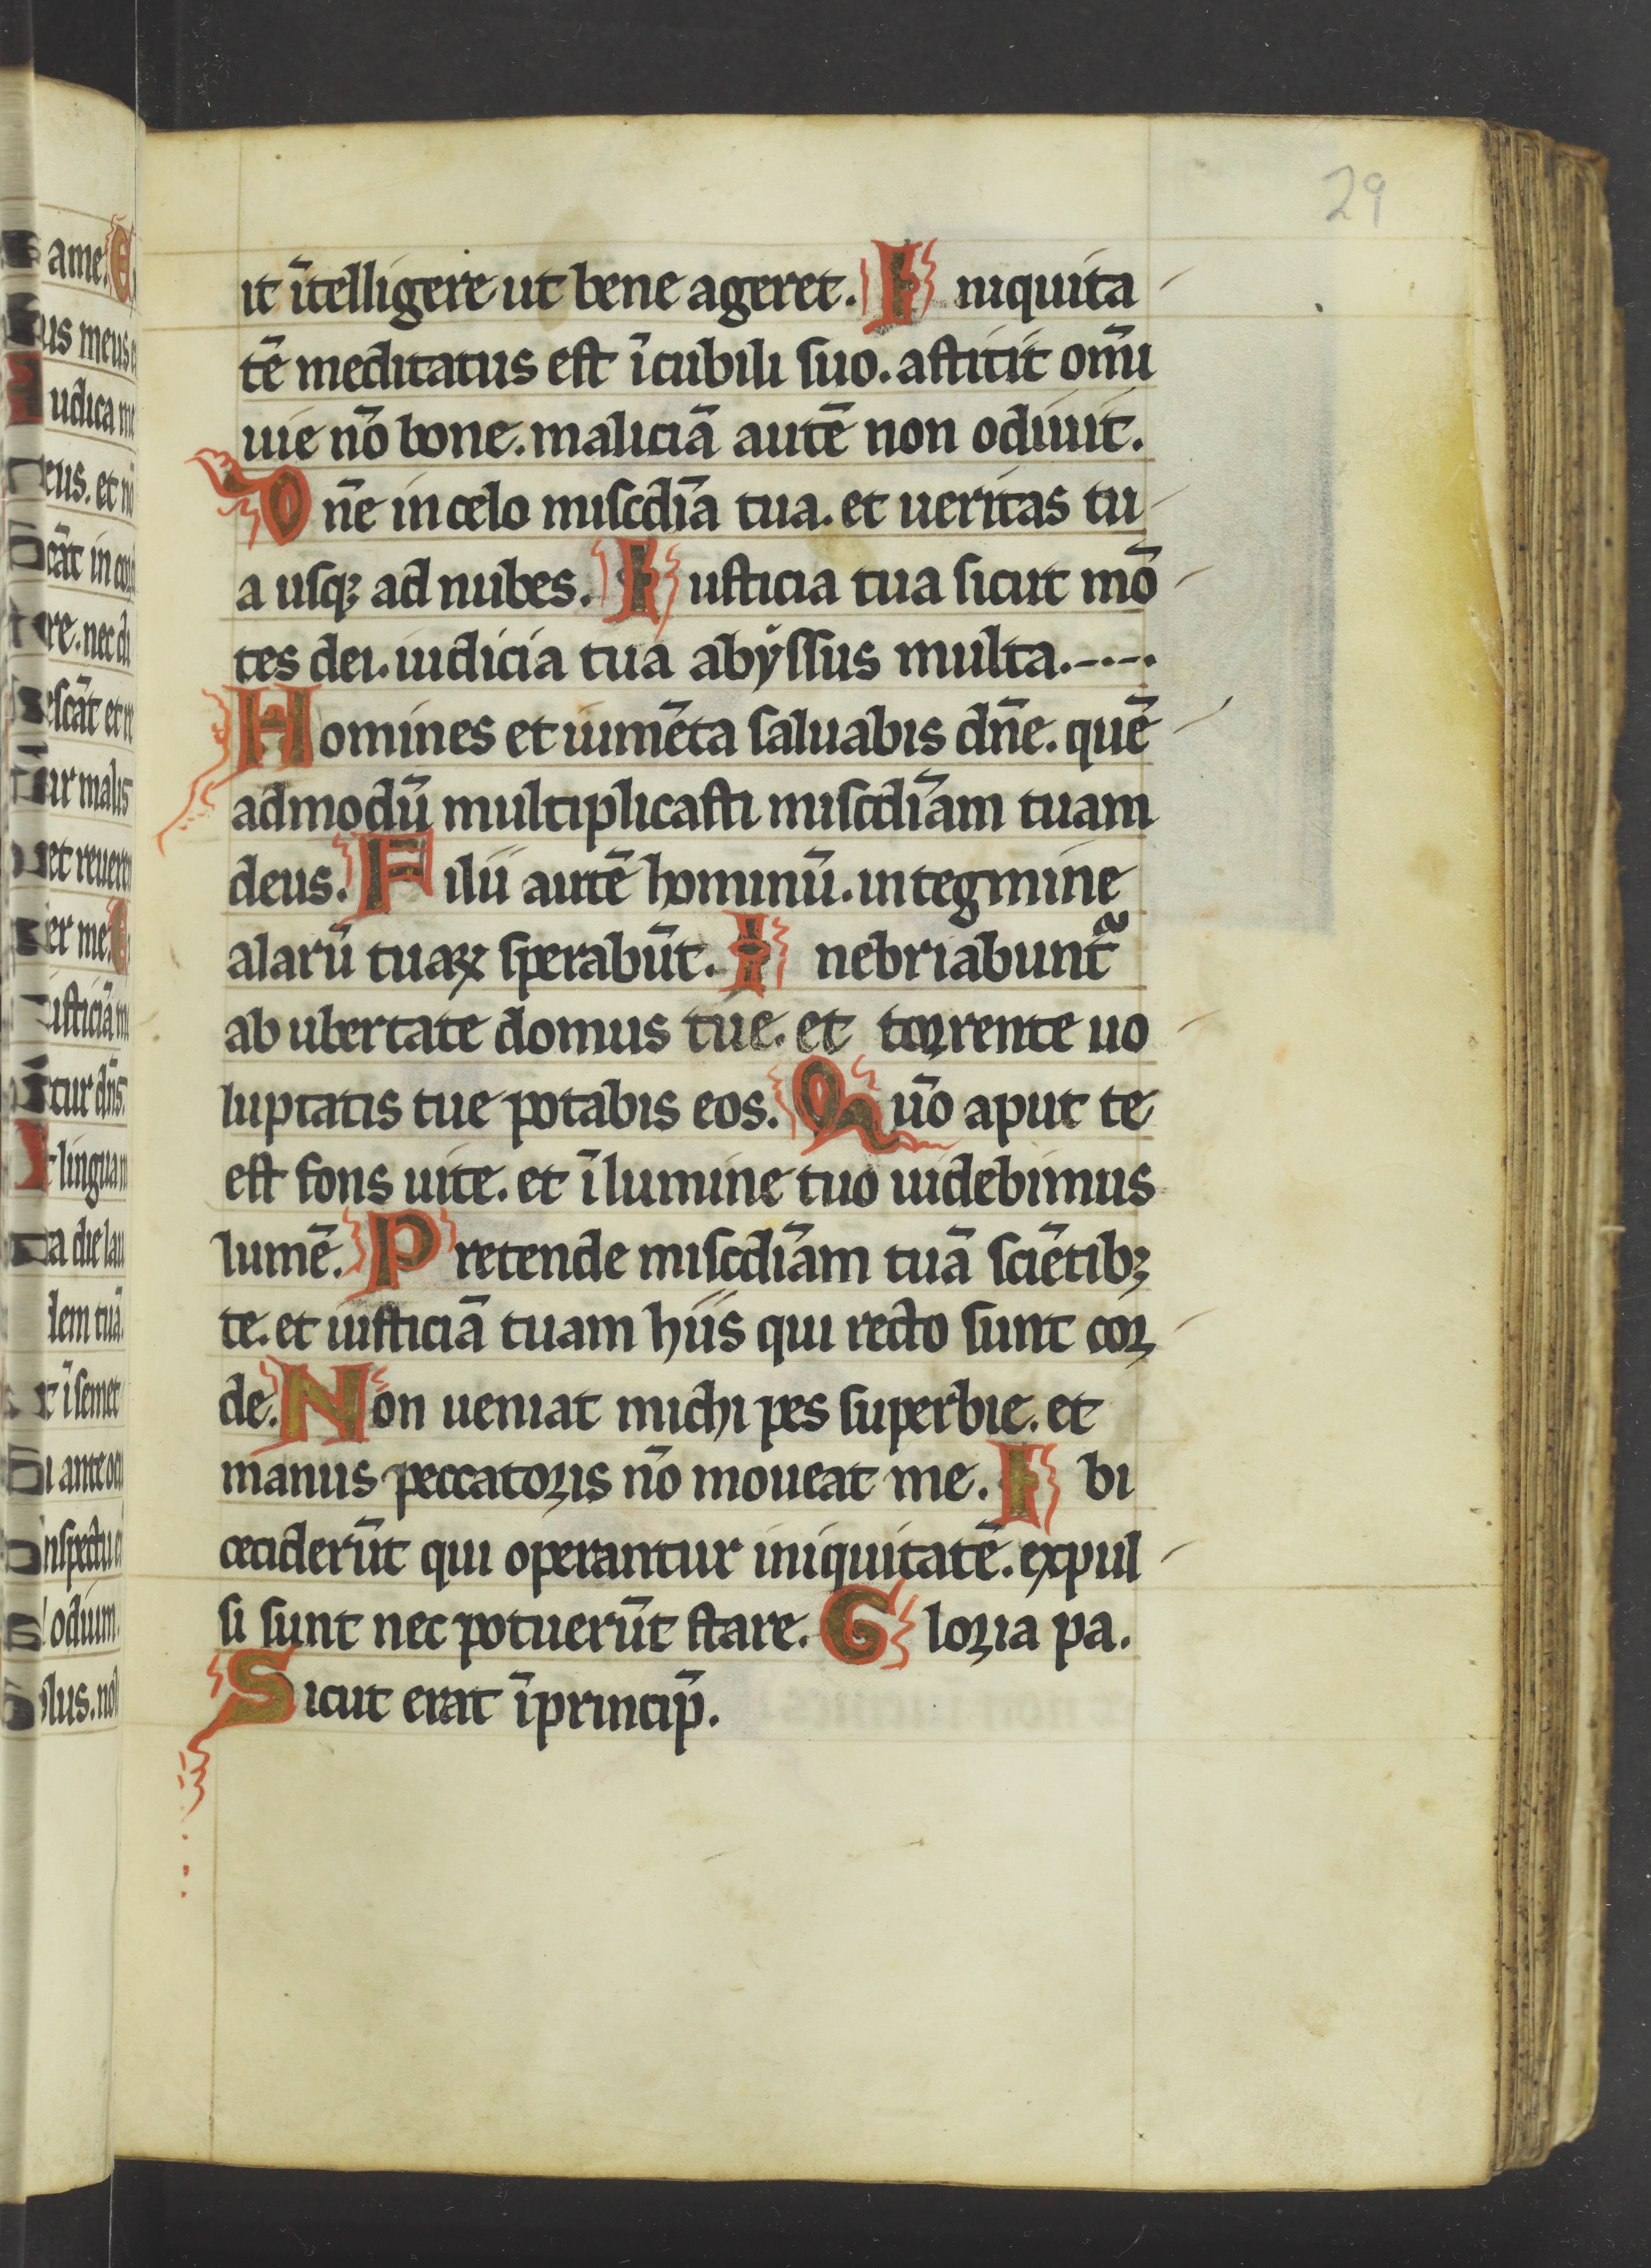 29
it ītelligere ut bene ageret. I niquita
tē meditatus est ī cubili suo. astitit om̄i
uie nō bone. maliciā autē non odiuit.
D n̄e in celo miscdīa tua. et ueritas tu
a usqꝫ ad nubes. I usticia tua sicut mō
tes dei. iudicia tua abyssus multa.-.-.
Homines et iumēta saluabis dn̄e. quē
admodū multiplicasti miscdīam tuam
deus. F ilii autē hominū. in tegmine
alarū tuaꝝ sperabūt. I nebriabunt᷑
ab ubertate domus tue. et torrente uo
luptatis tue potabis eos. Q uō aput te
est fons uite. et ī lumine tuo uidebimus
lumē. P retende miscdīam tuā sciētibꝫ
te. et iusticiā tuam hiis qui recto sunt cor
de. Non ueniat michi pes superbie. et
manus peccatoris nō moueat me. I bi
ceciderūt qui operantur iniquitatē. expul
si sunt nec potuerūt stare. G loria pa.
Sicut erat ī princip̄.